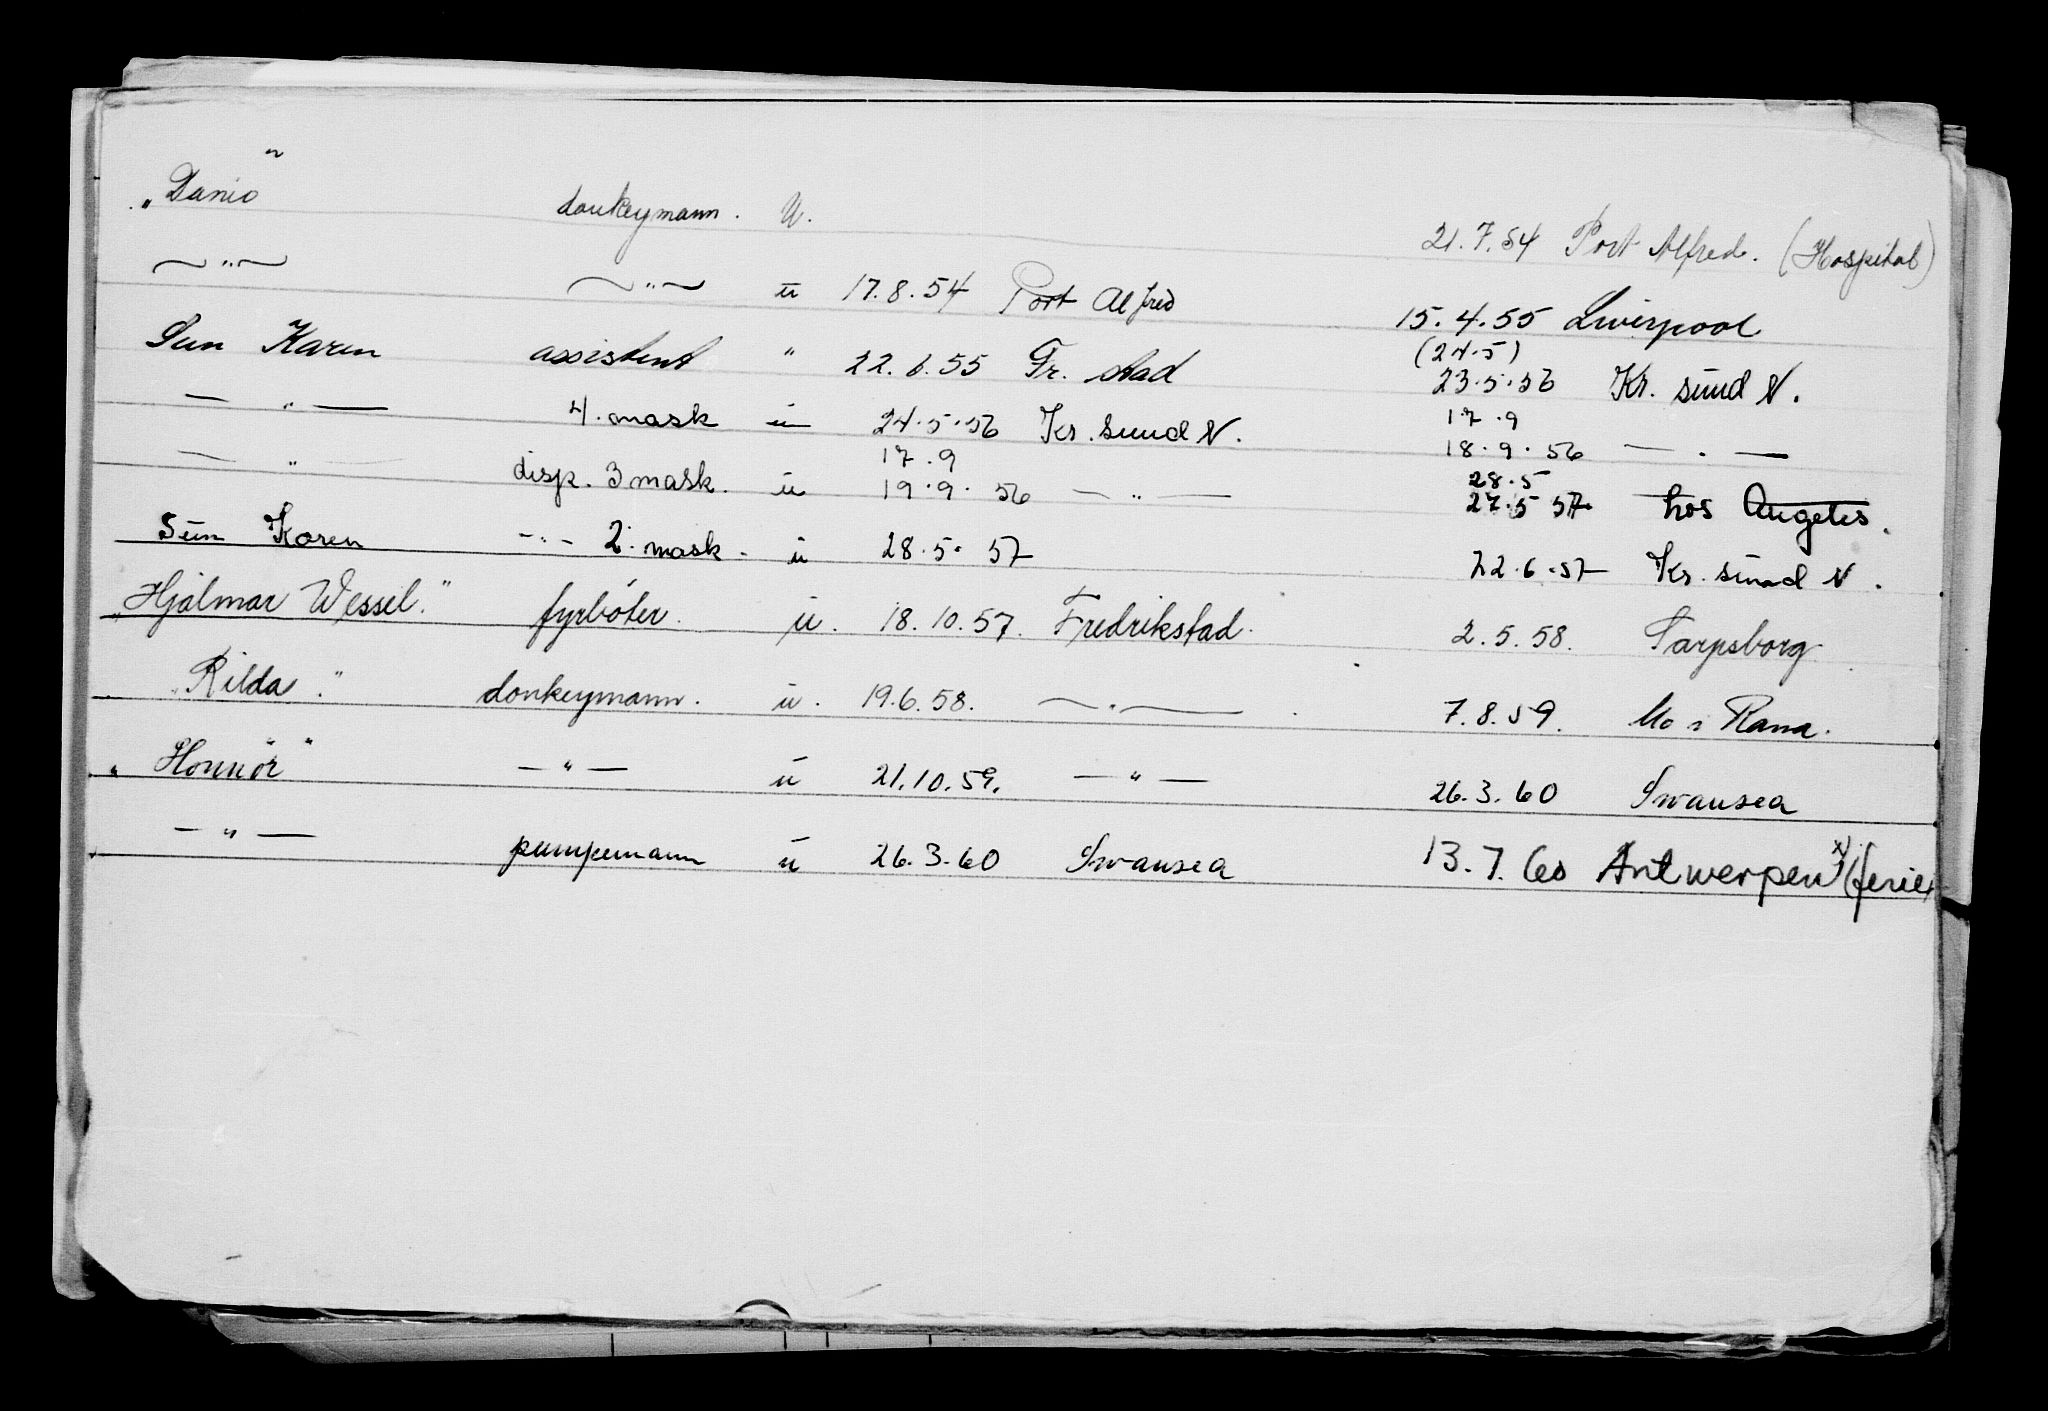 "Danio" donkeymann. U. 21.7.54 Port Alfred. (Hospital)
— " — — " — u 17.8.54 Port Alfred 15.4.55 Liverpool
(24.5)
Sun Karen assistent " 22.6.55 Fr. stad 23.5.56 Kr. sund N.
17.9
— " — 4. mask u 24.5.56 Kr. sund N. 18.9.56 — " —
17.9 28.5
— " — disp. 3 mask. u 19.9.56 — " — 27.5 57 Los Angeles.
Sun Karen — " — 2. mask. u 28.5.57 22.6.57 Kr. sund N.
"Hjalmar Wessel." fyrbøter. u. 18.10.57. Fredrikstad. 2.5.58. Sarpsborg
"Rilda." donkeymann. u. 19.6.58. — " — 7.8.59. Mo i Rana.
"Honnør" — " — u 21.10.59. — " — 26.3.60 Swansea
— " — pumpemann u 26.3.60 Swansea 13.7.60 Antwerpen x) (ferie)